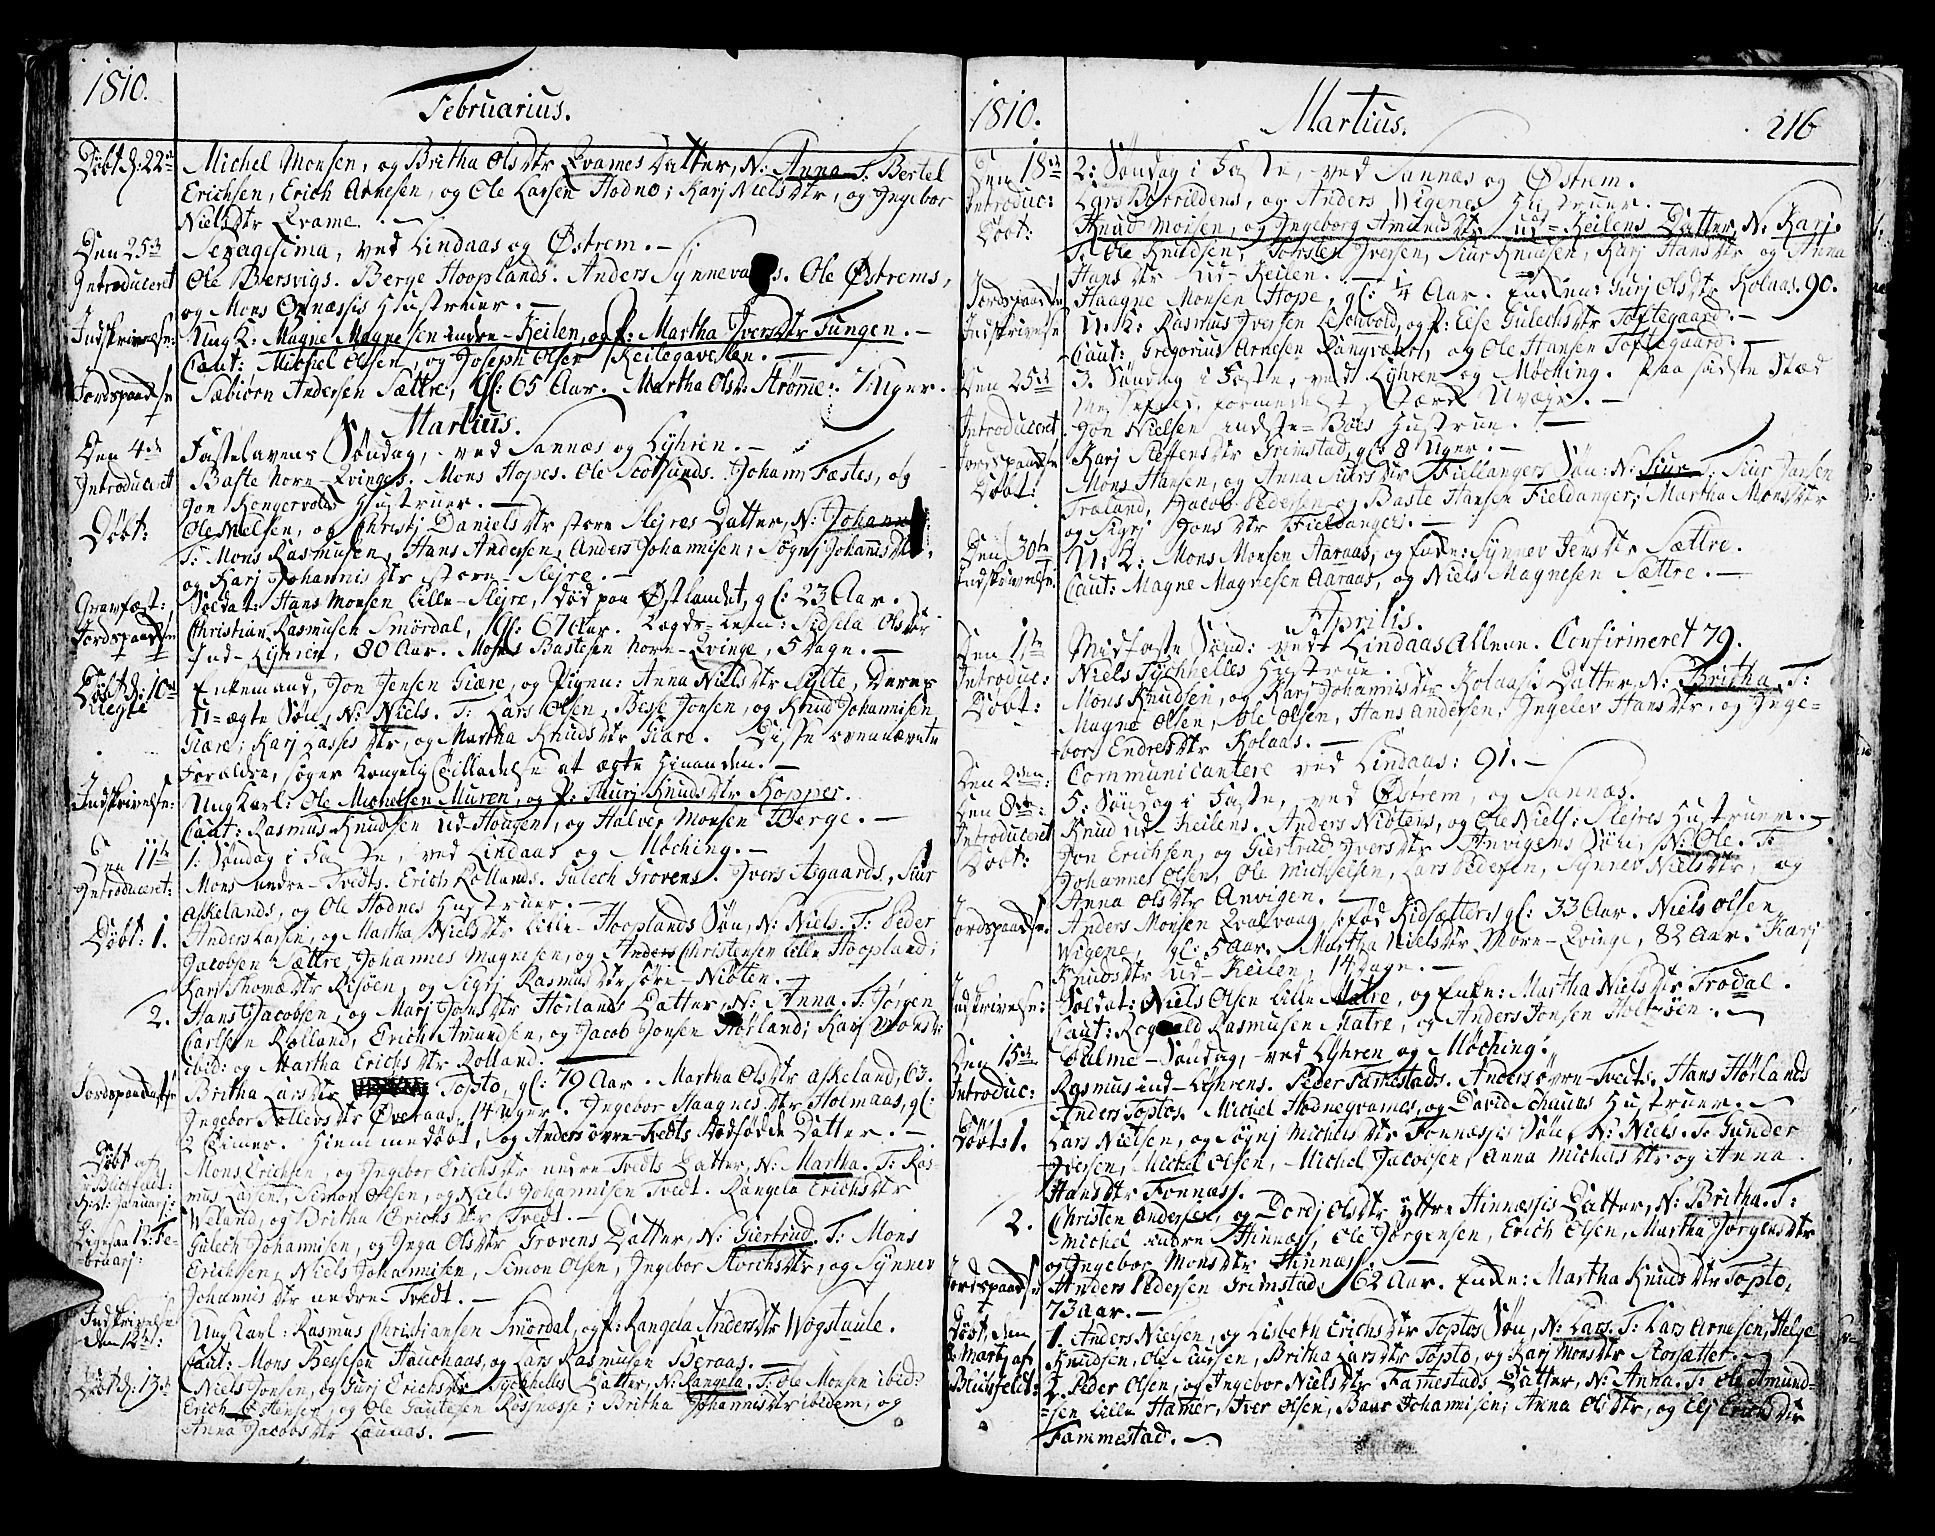 1810. Februarius.
Döbt d: 22de Michel Monsen, og Britha Olsdtr Qvames Datter, N: Anna. T. Bertel
Erichsen, Erich Arnesen, og Ole Larsen Hodne; Karj Nielsdtr, og Ingebor
Nielsdtr Qvame. —
Den 25de Sexagesima, ved Lindaas og Østrem. —
Introduceret Ole Bersvigs. Berge Hooplands. Anders Synnevaags. Ole Østrems,
og Mons Hustruer. —
Indskrivelse: Ung K: Magne Magnesen indre-Keilen, og P: Martha Iversdtr Tungen. —
Caut: Michel Olsen, og Joseph Olsen Keilegavelen. —
Jordspaadse Sæbiörn Andersen Sættre, gl: 65 Aar. Martha Olsdr: Strömme: 7 Uger.
Martius.
Den 4de Fastelavens Söndag, ved Sannæs og Lyhren. —
Introduceret Baste Norn-Qvinges. Mons Hopes. Ole Scotsunds. Johann Fæstes, og
Jon Kongsvolds Hustruer. —
Döbt: Ole Nielsen, og Christj Danielsdtr store Slejres Datter, N: Johanna
T: Mons Rasmusen, Hans Andersen, Anders Johannisen; Søgnj Johannisdtr,
og Karj Johannisdtr store-Slejre. —
Gravfæst: Soldat: Hans Monsen Lille-Slejre, död paa Østlandet, gl: 23 Aar.
Jordspaadse Christian Rasmusen Smördal, gl: 67 Aar. Lægds-Lem: Sidsela Olsdtr
Ind-Lyhren, 80 Aar. Mons Bastesen Norn-Qvinge, 5 Dage. —
Döbt d: 10de Enkemand, Jon Jensen Giære, og Pigen: Anna Nielsdtr Sylte, Deres
Uegte U-ægte Sön, N: Niels. T: Lars Olsen, Besse Jonsen, og Knud Johannisen
Giære; Karj Lassesdtr, og Martha Knudsdtr Giære. Disse ovennævnte
Foraldre, søger Kongelig Tilladelse at ægte hinanden. —
Indskrivelse: Ung Karl: Ole Michelsen Muren, og P: Guri Knudsdtr Kopper.
Caut: Rasmus Knudsen ud-Hougen, og Halver Monsen Berge. —
Den 11te 1: Söndag i Faste, ved Lindaas og Møching. —
Introduceret: Mons nedre-Tvedts. Erich Rollands. Gulech Grovens. Ivers Asgaards, Siur
Askelands, og Ole Hodnes Hustruer. —
Döbt: 1. Anders Larsen, og Martha Nielsdtr Lille-Hooplands Sön, N: Niels. T: Peder
Jacobsen Sættre, Johannes Magnesen, og Anders Christensen Lille Hoopland;
Kari Thomædtr Risöen, og Sigrj Rasmusdtr söre-Nibten. —
2. Hans Jacobsen, og Marj Jonsdtr Hörlands Datter, N: Anna. T: Jörgen
Carlsen Rolland, Erich Amundsen, og Jacob Jonsen Hörland; Karj Monsdtr
ibid: og Martha Erichsdtr Rolland.
Jordspaadelse Britha Larsdtr Topto, gl: 79 Aar. Martha Olsdtr Askeland, 63.
Ingebor Sællevsdtr Øvraas, 14 Uger. Ingebor Haagnesdtr Holmaas, gl:
2 Timer. Hiemmedöbt, og Anders övre-Tvedts Dødfødde Datter. —
Döbt af Mons Erichsen, og Ingebor Erichsdtr nedre Tvedts Datter, N: Martha. T: Ras-
Blichfelt: mus Larsen, Simon Olsen, og Niels Johannisen Tvedt. Rangela Erichsdtr
Januarj: Weland, og Britha Erichsdtr Tvedt. —
Ligesaa 12: Fe- Gulech Johannisen, og Inga Olsdtr Grovens Datter, N: Giertrud. T: Mons
bruarj: Erichsen, Niels Johannisen, Simon Olsen, Ingebor Storchsdtr, og Synnev
Johannisdtr nedre-Tvedt. —
Indskrivelse Ung Karl: Rasmus Christiansen Smördal, og P: Rangela Andersdtr Wogstuule.
den 12te: Caut: Mons Bessesen Hauchaas, og Lars Rasmusen Beraas. —
Döbt d: 13de Niels Jonsen, og Gurj Erichsdtr Tychhelles Datter, N: Rangela. T: Ole Monsen ibid:
Erich Ostensen, og Ole Gautesen Rosnæsse; Britha Johannisdtr ibidem, og
Anna Jacobsdtr Launas. —
1810. Martius. 216
Den 18de 2: Söndag i Faste, ved Sannæs og Østrem.
Introduc: Lars Børrildens, og Anders Wigenes Hustruer. —
Döbt: Knud Monsen, og Ingeborg Amundsdtr ud-Keilens Datter, N: Karj.
T. Ole Knudsen, Torsten Iversen, Siur Knudsen, Karj Hansdtr og Anna
Hansdtr ud-Keilen. —
Jordspaadse Haagne Monsen Hope, gl: 1/4 Aar. Enken: Gurj Olsdtr Kolaas. 90.
Indskrivelse U: K: Rasmus Iversen Lischbold, og P: Else Gulechsdtr Toftegaard. —
Caut: Gregorius Arnesen Kongvær, og Ole Hansen Toftegaard. —
Den 25de 3. Söndag i Faste, ved Lyhren og Møching. Paa sidste Stæd
formedelst stærk Uvejr. —
Introduceret Jon Nielsen indste-Böes Hustrue. —
Jordspaadse Karj Steffensdtr Grimstad, gl: 8 Uger. —
Döbt: Mons Hansen, og Anna Siursdtr Fiellangers Sön: N: Siur. T: Siur Jansen
Træland, Jacob Pedersen og Baste Hansen Fieldanger; Martha Monsdtr
og Sigrj Jonsdtr Fieldangers. —
Den 30te U: K: Mons Monsen Aaraas, og Enke: Synnev Jensdtr Sættre.
Indskrivelse: Caut: Magne Magnesen Aaraas, og Niels Magnesen Sættre. —
Aprilis.
Den 1te Midfaste Sönd: ved Lindaas Allene. Confirmeret 79.
Introduc: Niels Tychhelles Hustrue. —
Döbt: Mons Knudsen, og Karj Johannisdtr Kolaass Datter, N: Britha. T:
Magne Olsen, Ole Olsen, Hans Andersen, Ingelev Hansdtr, og Inge-
bor Endresdtr Kolaas. —
Den 2den: Communicantere ved Lindaas: 91. —
Den 8de: 5: Söndag i Faste, ved Østrem, og Sannæs.
Introduceret Knud ud-Keilens. Anders Nibtens, og Ole Niels: Slejres Hustruer. —
Döbt: Jon Erichsen, og Giertrud Iversdtr Anvigens Sön, N: Ole. T:
Johannes Olsen, Ole Michelsen, Lars Pedersen, Synnev Nielsdtr, og
Anna Olsdtr Anvigen. —
Jordspaadse. Anders Monsen Qvalvaag, föd Kidsætter; gl: 33 Aar. Niels Olsen
Wigene, gl: 5 Aar. Martha Nielsdtr Norn-Qvinge, 82 Aar. Karj
Knudsdtr ud-Keilen, 14 Dage. —
Indskrivelse: Soldat: Niels Olsen Lille Matre, og Enke: Martha Nielsdtr Trodal.
Caut: Rasmusen Matre, og Anders Jonsen Holtöen. —
Den 15de Palme-Söndag, ved Lyhren og Møching.
Introduc: Rasmus ind-Lyhrens. Peder Famestads. Anders övre-Tvedts. Hans Hörlands
Anders Toptos. Michel Hodneqvames, og David Schauas Hustruer. —
Döbt: 1. Lars Nielsen, og Søgnj Michelsdtr Fonnæssis Sön, N: Niels. T: Gunder
Iversen, Michel Olsen, Michel Jacobsen, Anna Michelsdtr og Anna
Hansdtr Fonnæss.
2. Christen Andersen, og Dordj Olsdtr yttre Hinnæssis Datter, N: Britha. T:
Michel indre Hinnæss, Ole Jörgensen, Erich Olsen, Martha Jörgensdtr
og Ingebor Monsdtr Hinnæss.
Jordspaadse Anders Pedersen Grimstad, 62 Aar. Enke: Martha Knudsdtr Topto,
73 Aar. —
Döbt, den 1. Anders Nielsen, og Lisbeth Erichsdtr Toptos Sön, N: Lars. T: Lars Arnesen, Helge
Martj af Knudsen, Ole Siursen, Britha Larsdtr Topto, og Karj Monsdtr Storsættet. —
Blichfeldt: 2. Peder Olsen, og Ingebor Nielsdtr Famestads Datter, N: Anna. T: Ole Amund-
sen Lille Hamer, Iver Olsen, Baar Johannisen; Anna Olsdtr, og Elj Erichsdtr
Fammestad. —